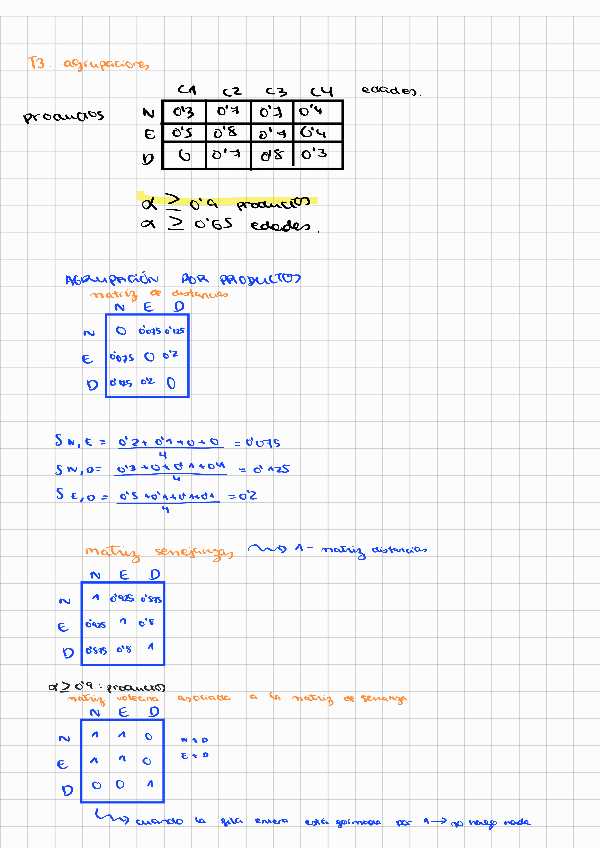 T3. agrupaciones
C1 C2 C3 C4 edades.
productos
N 0'3 0'7 0'7 0'4
E 0'5 0'8 0'7 0'4
D 0 0'7 0'8 0'3
α ≥ 0'9 productos
α ≥ 0'65 edades.
AGRUPACIÓN POR PRODUCTOS
matriz de distancias
N E D
N 0 0'075 0'125
E 0'075 0 0'2
D 0'125 0'2 0
δ N,E = 0'2+0'1+0+0 / 4 = 0'075
δ N,D = 0'3+0+0'1+0'1 / 4 = 0'125
δ E,D = 0'5+0'1+0'1+0'1 / 4 = 0'2
matriz semejanzas ⟿ 1 - matriz distancias
N E D
N 1 0'925 0'875
E 0'925 1 0'8
D 0'875 0'8 1
α ≥ 0'9 : productos
matriz asociada a la matriz de
N E D
N 1 1 0
E 1 1 0
D 0 0 1
cuando la fila entera está por 1 → no hago nada